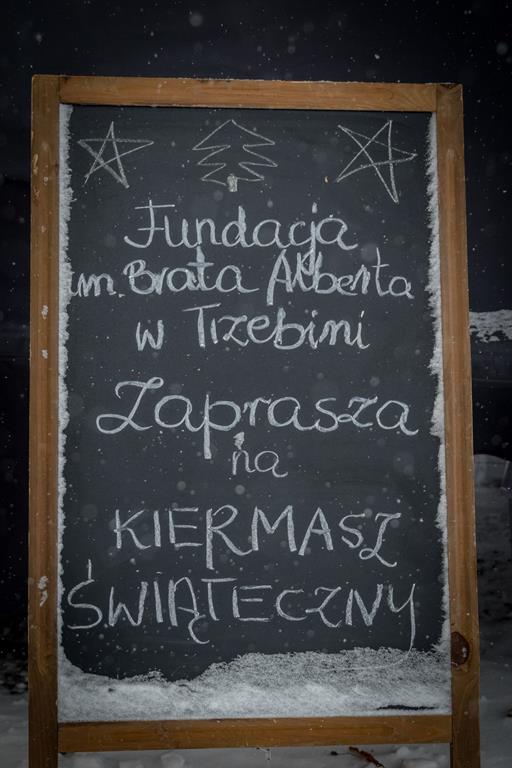 Fundacja
im. Brata Alberta
w Trzebini
Zaprasza
na
KIERMASZ
ŚWIĄTECZNY